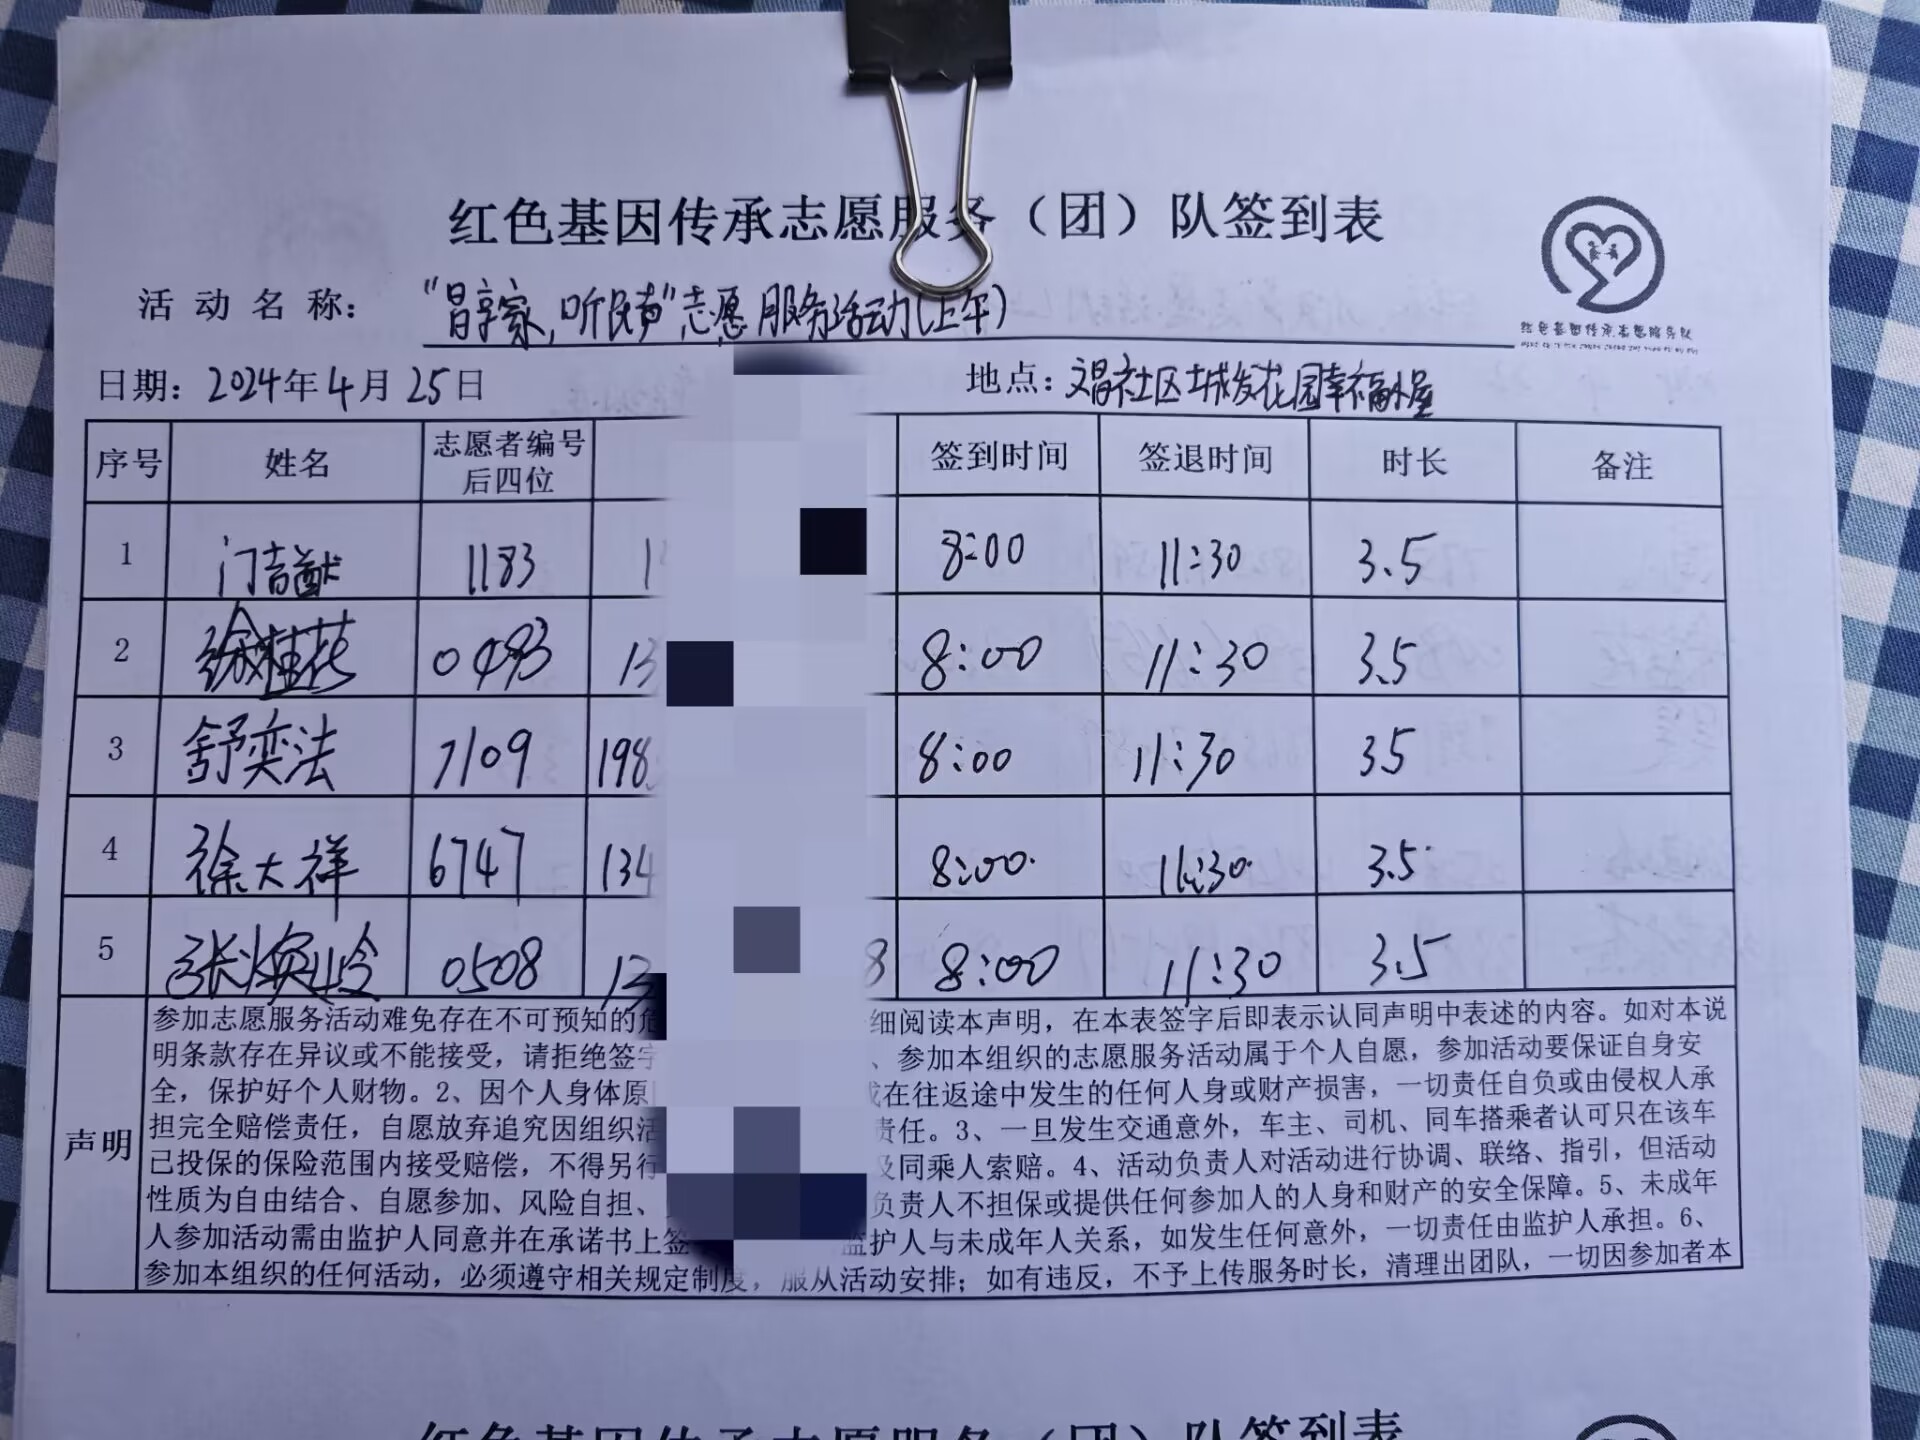 红色基因传承志愿服务（团）队签到表
活动名称：“昌享家，听民声”志愿服务活动（上午）
红色基因传承志愿服务队
日期：2024年4月25日 地点：文昌社区城发花园幸福小屋
序号 姓名 志愿者编号后四位 签到时间 签退时间 时长 备注
1 门吉猷 1183 1 8:00 11:30 3.5
2 徐桂花 0493 13 8:00 11:30 3.5
3 舒奕法 7109 198 8:00 11:30 3.5
4 徐大祥 6747 134 8:00 11:30 3.5
5 张焕岭 0508 13 8 8:00 11:30 3.5
声明
参加志愿服务活动难免存在不可预知的危 细阅读本声明，在本表签字后即表示认同声明中表述的内容。如对本说
明条款存在异议或不能接受，请拒绝签字 、参加本组织的志愿服务活动属于个人自愿，参加活动要保证自身安
全，保护好个人财物。2、因个人身体原 或在往返途中发生的任何人身或财产损害，一切责任自负或由侵权人承
担完全赔偿责任，自愿放弃追究因组织活 责任。3、一旦发生交通意外，车主、司机、同车搭乘者认可只在该车
已投保的保险范围内接受赔偿，不得另行 及同乘人索赔。4、活动负责人对活动进行协调、联络、指引，但活动
性质为自由结合、自愿参加、风险自担、 负责人不担保或提供任何参加人的人身和财产的安全保障。5、未成年
人参加活动需由监护人同意并在承诺书上签 监护人与未成年人关系，如发生任何意外，一切责任由监护人承担。6、
参加本组织的任何活动，必须遵守相关规定制度，服从活动安排；如有违反，不予上传服务时长，清理出团队，一切因参加者本
红色基因传承志愿服务（团）队签到表